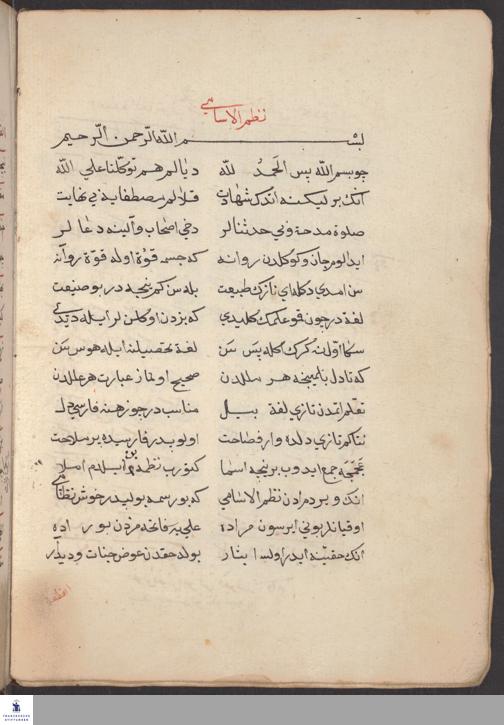 نظم الاسامي
بسم الله الرحمن الرحيم
چو بسم الله بس الحمد لله ديالم هم توكلنا علي الله
انك برليكنه اندك شهادت قلالم مصطفايه بي نهايت
صلوة مدحة وفي حدثنالر دخي اصحاب وآلينه دعالر
ايدالوم جان وكوكلدن روانه كه جسمه قوة اوله قوة روانه
بس امدي دكله اي نازك طبيعت بله سن كم نيجه در بو صنيعت
لغة در چون قو علمك كليدي كه بزدن اوكلن لر ايله ديدي
سكا اولسه كرك كله بس سن لغة تحصيلنه ايله هوس سن
كه تا دل بلمينجه هر مللدن صحيح اولماز عبارت هر عللدن
تعلم ابتدن تازي لغة بيل مناسب در چو هنه فارسي دل
نتاكم تازي دلده وار فصاحت اولوبدر فارسيده بر ملاحت
عجميه جمع ايدوب برنجه اسما كتورب نظمه بن ايلدم املا
انك ويردم ادن نظم الاسامي كه بو رسمه بوليدر خوش نظامي
اوقيانلر بوني ايرسون مراده علي بر فاتحه مزدن بوراده
انك حقينه ايدر اولسا ايثار بوله حقدن عوض جنات وديدار